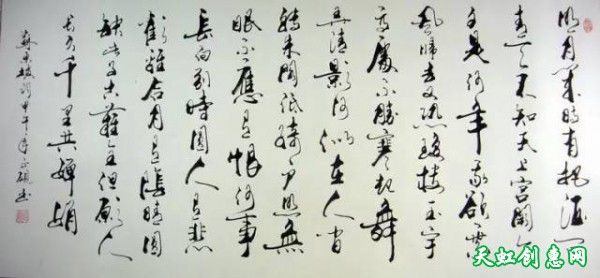 明月幾時有把酒問
青天不知天上宮闕今
夕是何年我欲乘
風歸去又恐瓊樓玉宇
高處不勝寒起舞
弄清影何似在人間
轉朱閣低綺戶照無
眠不應有恨何事
長向別時圓人有悲
歡離合月有陰晴圓
缺此事古難全但願人
長久千里共嬋娟
蘇東坡詞甲午年
天虹创惠网